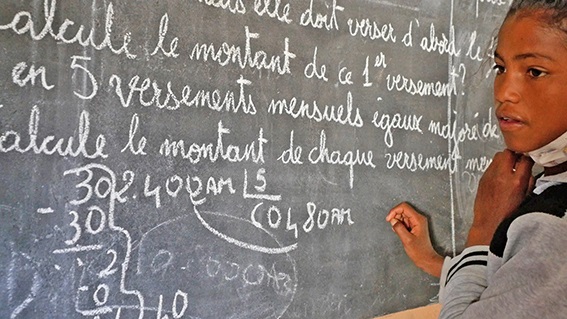 elle doit verser d'abord le
Calcule le montant de ce 1er versement?
en 5 versements mensuels égaux majoré de
Calcule le montant de chaque versement men
302.400AM 5
- 30 60480AM
2
- 0